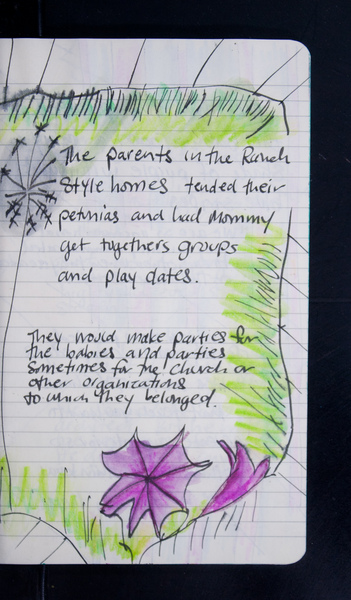 The parents in the Ranch
style homes tended their
petunias and had Mommy
get togethers groups
and play dates.
They would make parties for
the babies and parties
sometimes for the church or
other organizations
to which they belonged.